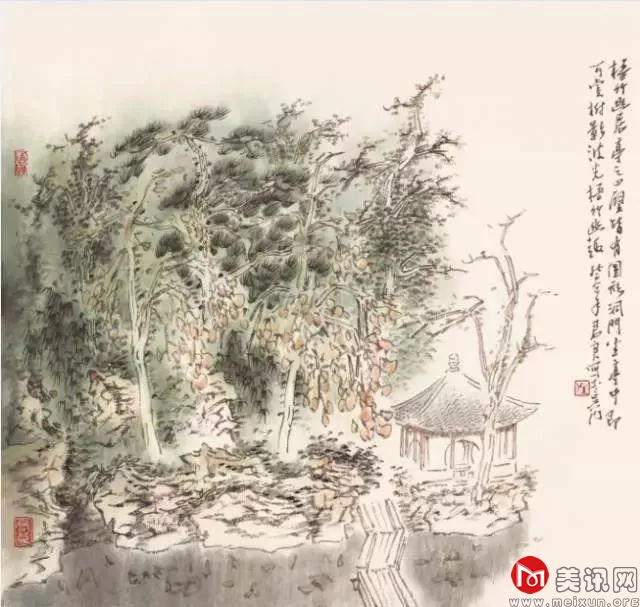 梧竹幽居亭之四壁皆有圆形洞门坐亭中即
可赏树影波光梧竹幽趣年君写于吴门
美讯网
www.meixun.org